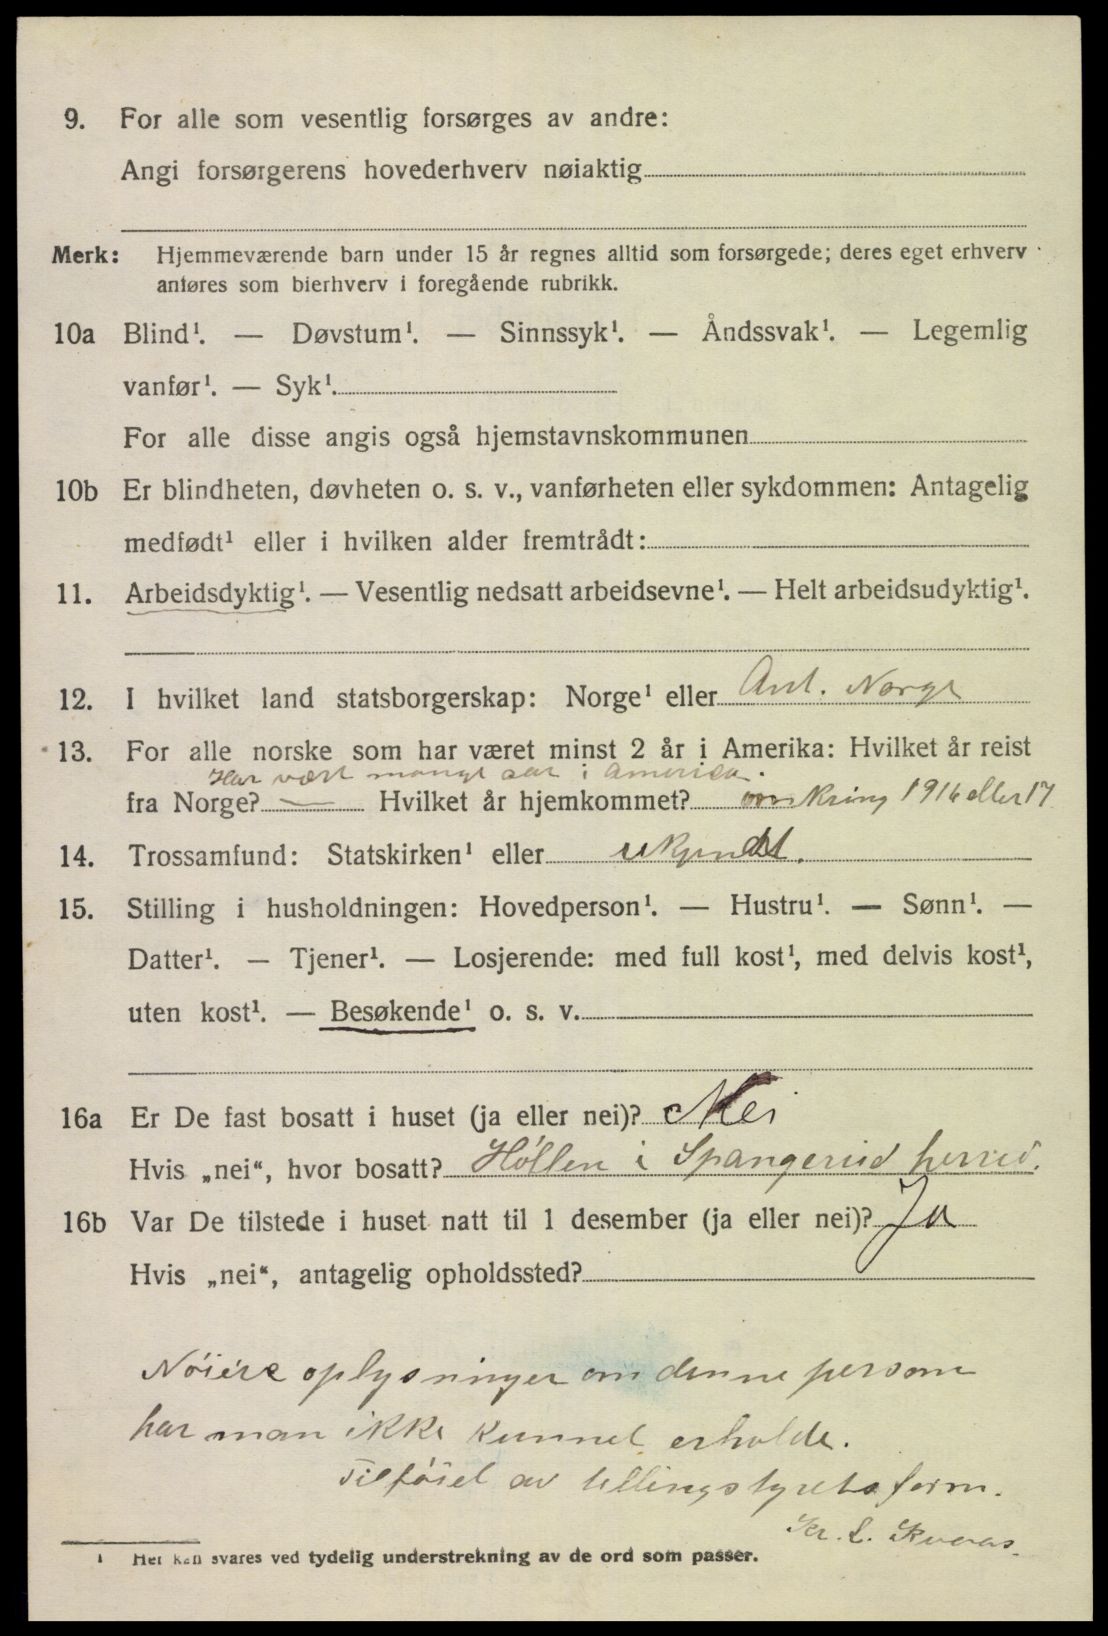 9. For alle som vesentlig forsørges av andre:
Angi forsørgerens hovederhverv nøiaktig
Merk: Hjemmeværende barn under 15 år regnes alltid som forsørgede; deres eget erhverv
anføres som bierhverv i foregående rubrikk.
10a Blind¹. — Døvstum¹. — Sinnssyk¹. — Åndssvak¹. — Legemlig
vanfør¹. — Syk¹.
For alle disse angis også hjemstavnskommunen
10b Er blindheten, døvheten o. s. v., vanførheten eller sykdommen: Antagelig
medfødt¹ eller i hvilken alder fremtrådt:
11. Arbeidsdyktig¹. — Vesentlig nedsatt arbeidsevne¹. — Helt arbeidsudyktig¹.
12. I hvilket land statsborgerskap: Norge¹ eller Ant. Norge
13. For alle norske som har været minst 2 år i Amerika: Hvilket år reist
Har vært mange aar i America.
fra Norge? — Hvilket år hjemkommet? omkring 1916 eller 17
14. Trossamfund: Statskirken¹ eller ukjendt.
15. Stilling i husholdningen: Hovedperson¹. — Hustru¹. — Sønn¹. —
Datter¹. — Tjener¹. — Losjerende: med full kost¹, med delvis kost¹,
uten kost¹. — Besøkende¹ o. s. v.
16a Er De fast bosatt i huset (ja eller nei)? Nei
Hvis „nei“, hvor bosatt? Høllen i Spangereid herred.
16b Var De tilstede i huset natt til 1 desember (ja eller nei)? Ja
Hvis „nei“, antagelig opholdssted?
Nöiere oplysninger om denne person
har man ikke kunnet erholde.
Tilföiet av tellingstyrets form.
Kr. L. Kvaas.
¹ Her kan svares ved tydelig understrekning av de ord som passer.